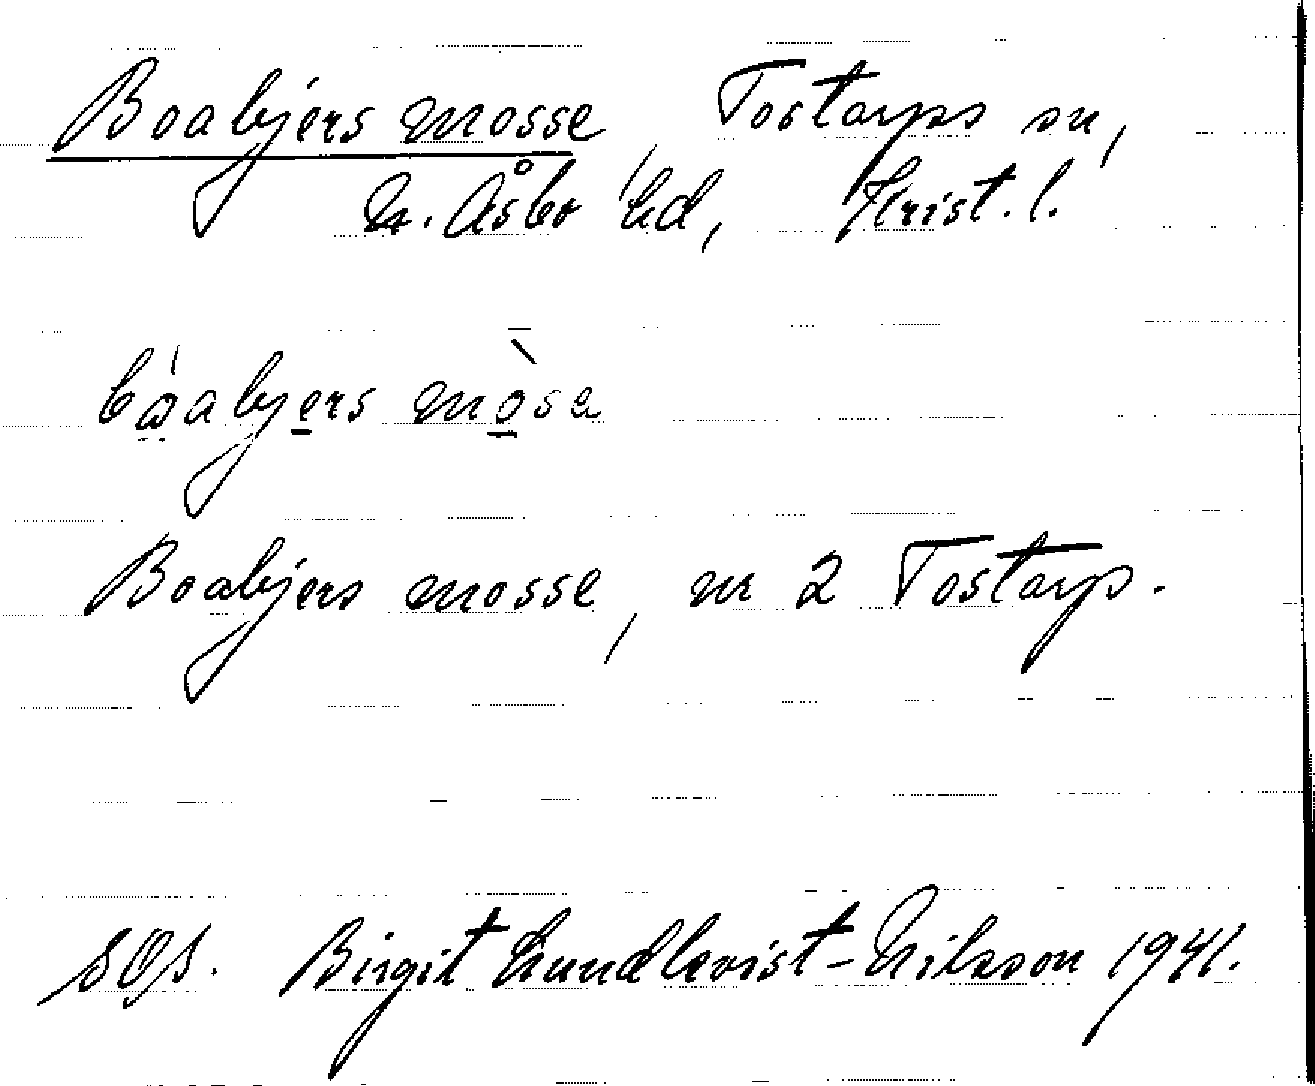 Boabjers mosse, Tostarps sn,
N. Åsbo hd, Krist. l.
bóabjers mòse
Boabjers mosse, nr 2 Tostarp.
SOS. Birgit Lundkvist-Nilsson 1941.